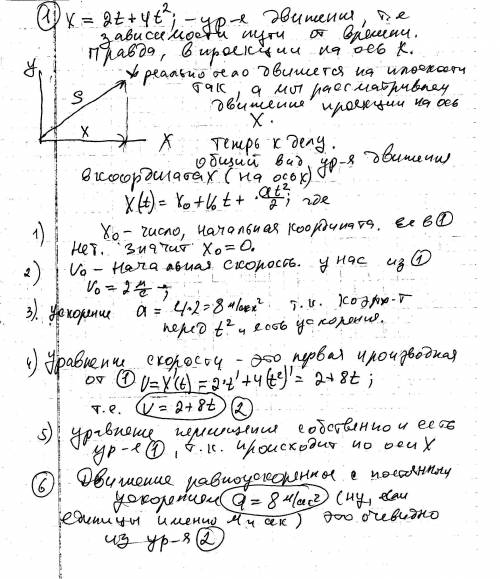 ① X = 2t + 4t²; - ур-е движения, т.е
зависимости пути от времени.
Правда, в проекции на ось X.
y
реально тело движется на плоскости
S
так, а мы рассматриваем
движение проекции на ось
X.
X X
Теперь к делу.
общий вид ур-я движения
в координатах (на ось X)
X(t) = X₀ + V₀t + at²/2; где
1) X₀ - число, начальная координата. Её в ①
нет. значит X₀ = 0.
2) V₀ - начальная скорость. у нас из ①
V₀ = 2 м/с;
3). ускорение a = 4·2 = 8 м/сек² т.к. коэфф-т
перед t² и есть ускорение.
4) Уравнение скорости - это первая производная
от ① V = X'(t) = 2·t' + 4(t²)' = 2 + 8t;
т.е. V = 2 + 8t ②
5) уравнение перемещения собственно и есть
ур-е ①, т.к. происходит по оси X
⑥ Движение равноускоренное с постоянным
ускорением a = 8 м/сек² (ну, если
единицы именно м и сек) это очевидно
из ур-я ②